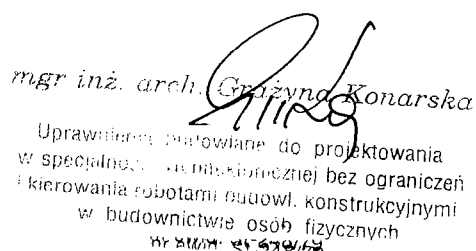 mgr inż. arch. Grażyna Konarska
Uprawnienia budowlane do projektowania
w specjalności architektonicznej bez ograniczeń
i kierowania robotami budowl. konstrukcyjnymi
w budownictwie osób fizycznych